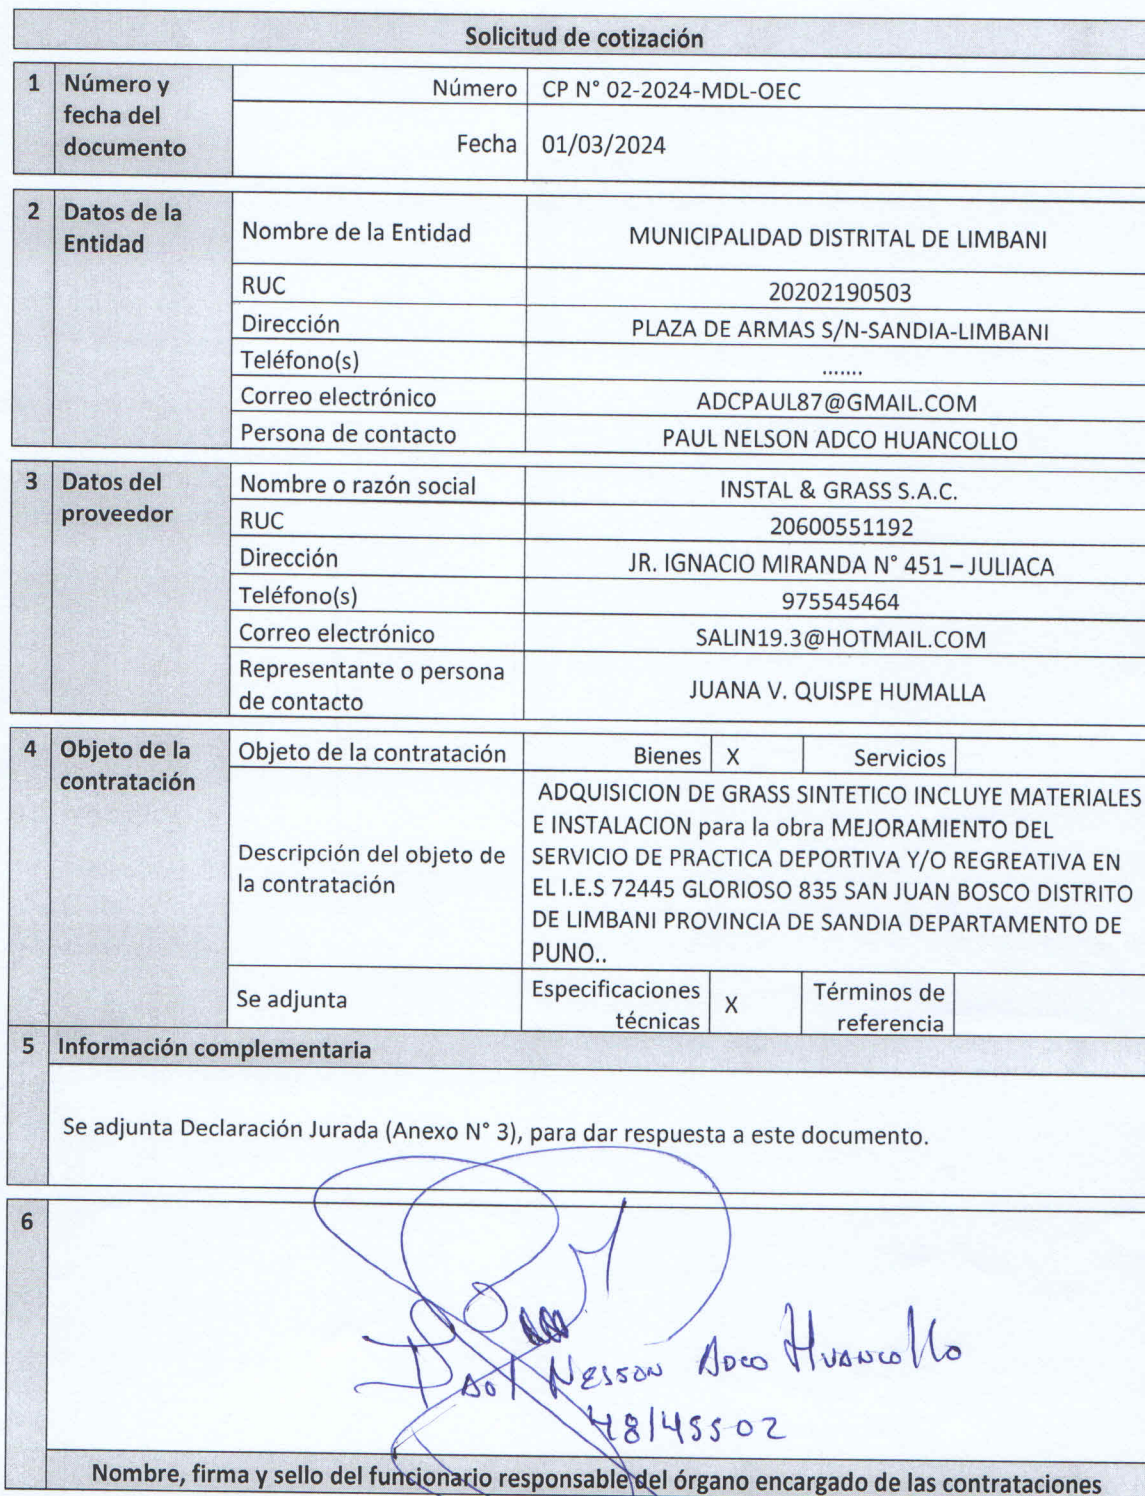 Solicitud de cotización
1 Número y fecha del documento
Número CP N° 02-2024-MDL-OEC
Fecha 01/03/2024
2 Datos de la Entidad
Nombre de la Entidad MUNICIPALIDAD DISTRITAL DE LIMBANI
RUC 20202190503
Dirección PLAZA DE ARMAS S/N-SANDIA-LIMBANI
Teléfono(s) .......
Correo electrónico ADCPAUL87@GMAIL.COM
Persona de contacto PAUL NELSON ADCO HUANCOLLO
3 Datos del proveedor
Nombre o razón social INSTAL & GRASS S.A.C.
RUC 20600551192
Dirección JR. IGNACIO MIRANDA N° 451 – JULIACA
Teléfono(s) 975545464
Correo electrónico SALIN19.3@HOTMAIL.COM
Representante o persona de contacto JUANA V. QUISPE HUMALLA
4 Objeto de la contratación
Objeto de la contratación Bienes X Servicios
Descripción del objeto de la contratación
ADQUISICION DE GRASS SINTETICO INCLUYE MATERIALES
E INSTALACION para la obra MEJORAMIENTO DEL
SERVICIO DE PRACTICA DEPORTIVA Y/O REGREATIVA EN
EL I.E.S 72445 GLORIOSO 835 SAN JUAN BOSCO DISTRITO
DE LIMBANI PROVINCIA DE SANDIA DEPARTAMENTO DE
PUNO..
Se adjunta Especificaciones técnicas X Términos de referencia
5 Información complementaria
Se adjunta Declaración Jurada (Anexo N° 3), para dar respuesta a este documento.
6
Adco Huancollo
48145502
Nombre, firma y sello del funcionario responsable del órgano encargado de las contrataciones